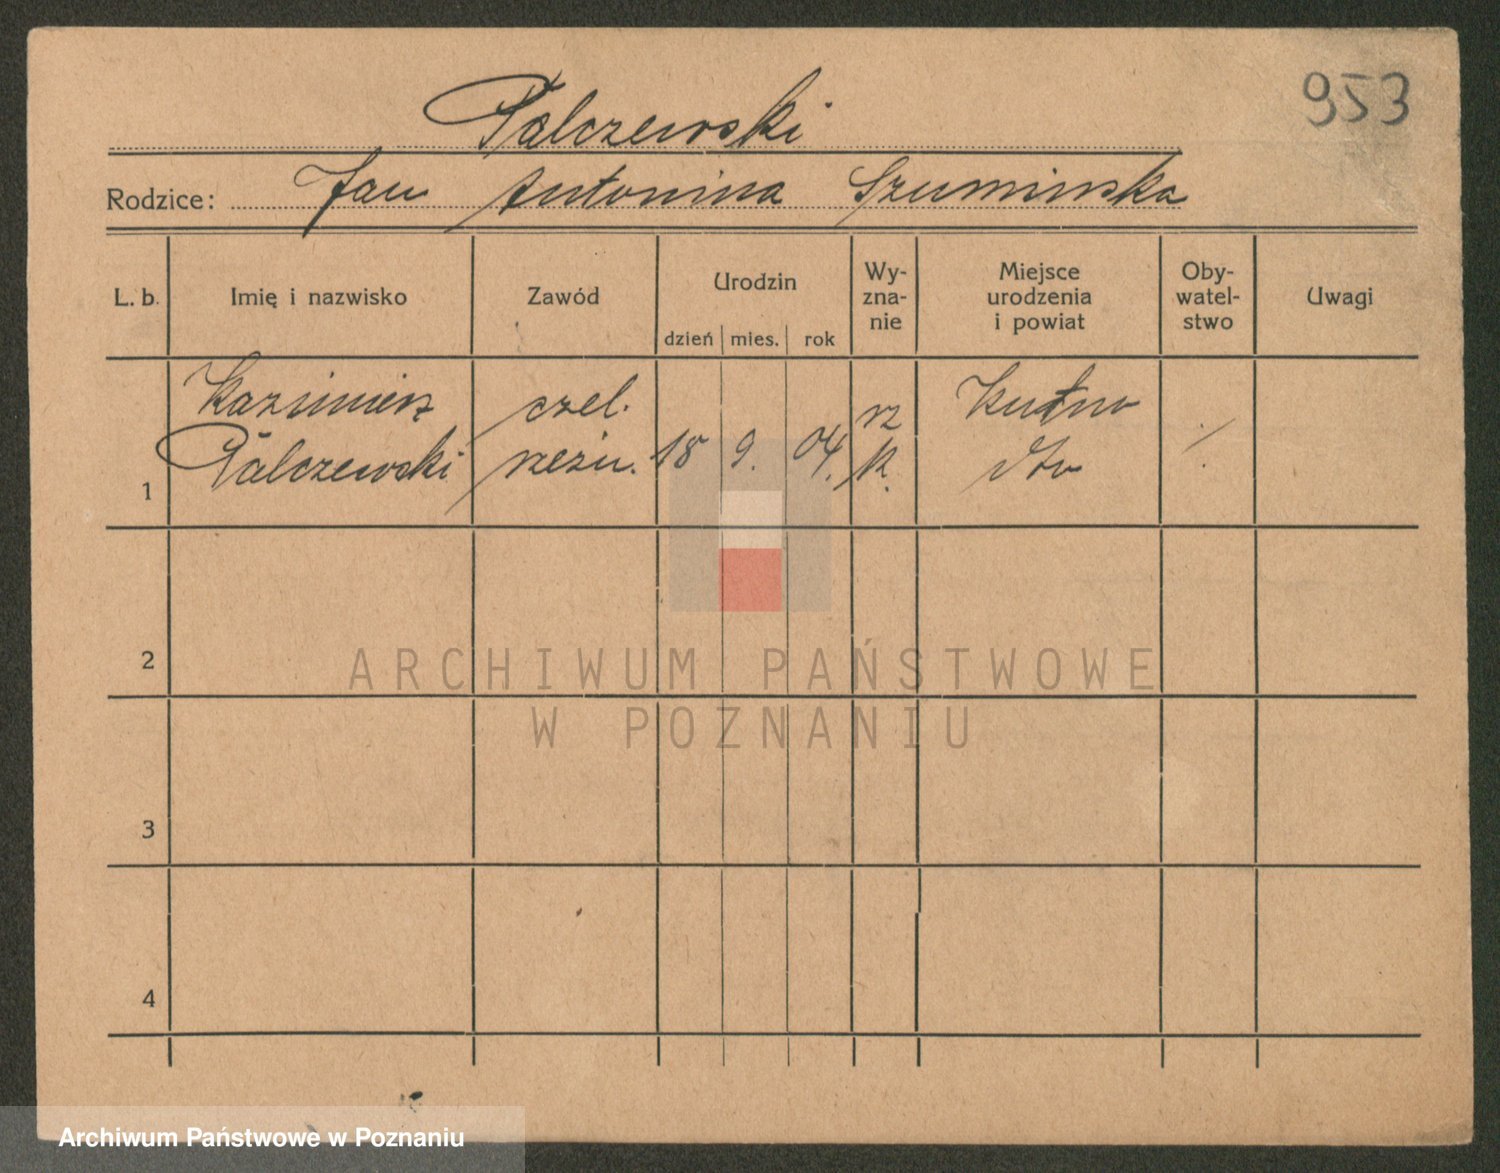 953
Palczewski
Rodzice: Jan Antonina Szuminska
L. b.
Imię i nazwisko
Zawód
Urodzin
dzień
mies.
rok
Wy-
zna-
nie
Miejsce
urodzenia
i powiat
Oby-
watel-
stwo
Uwagi
1
Kazimierz
Palczewski
czel.
rzeźn.
18
9.
04.
rz
k.
Kutno
dto
2
3
4
ARCHIWUM PAŃSTWOWE
W POZNANIU
Archiwum Państwowe w Poznaniu